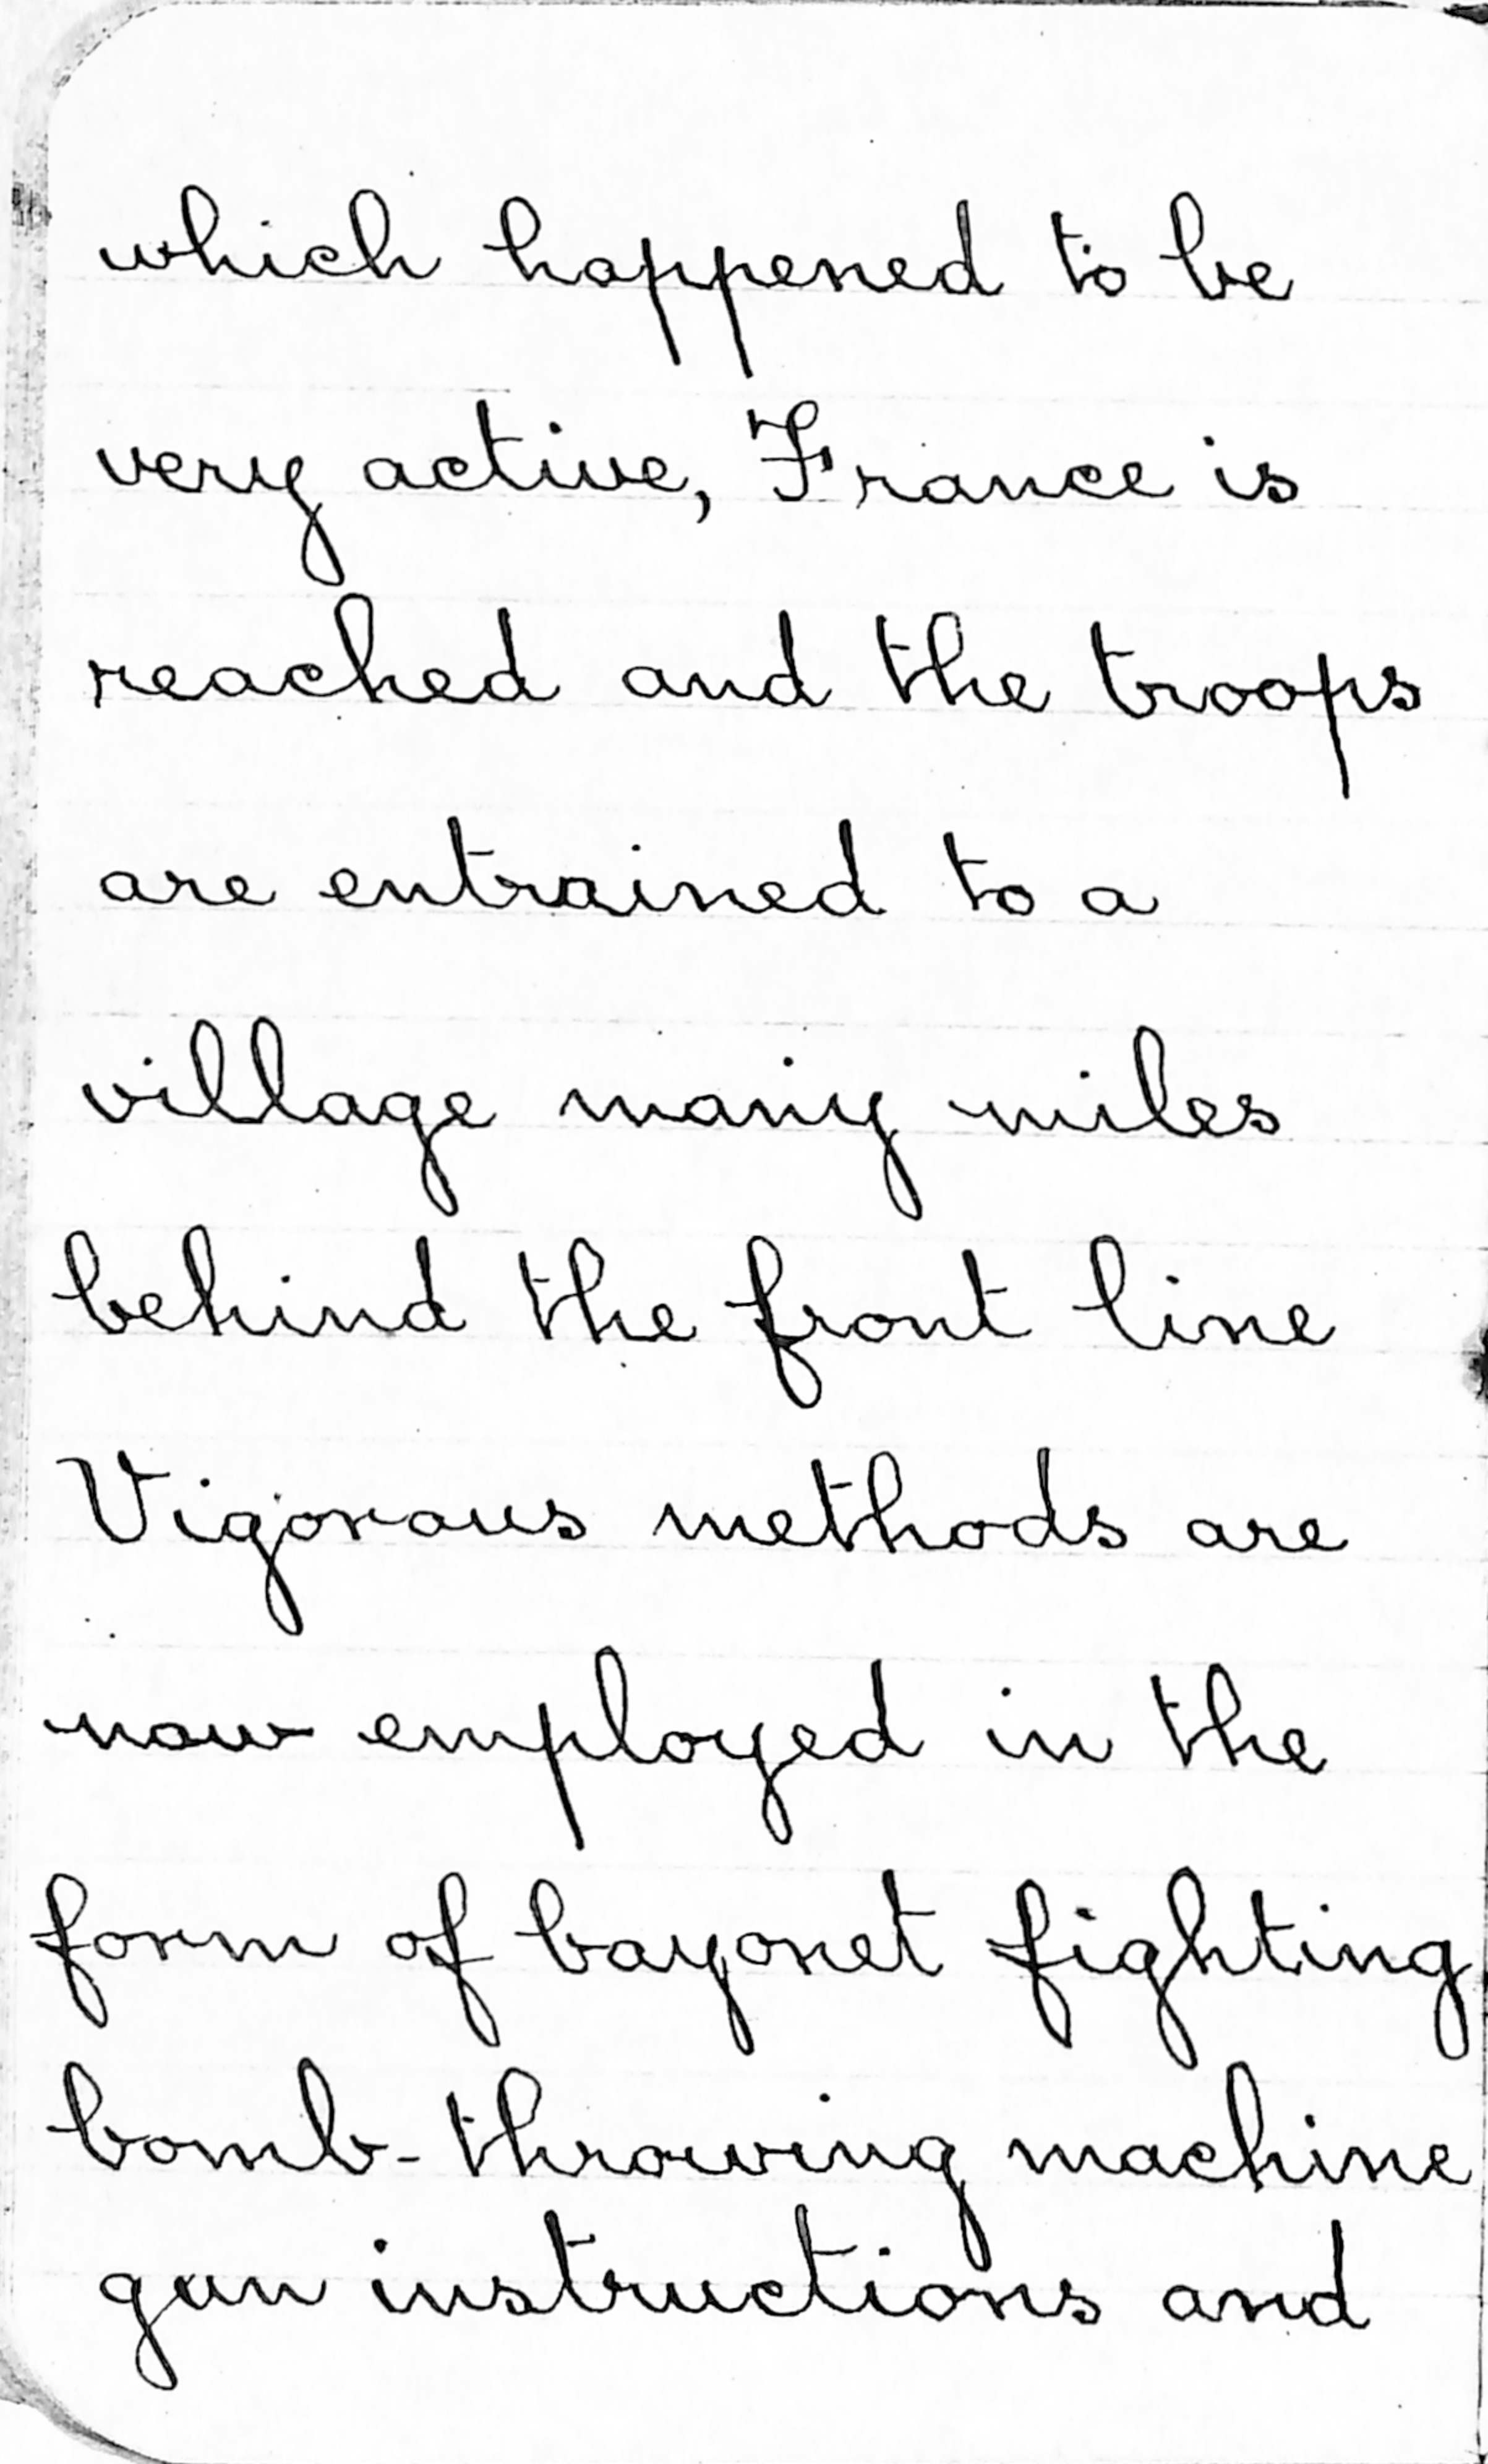 which happened to be
very active, France is
reached and the troops
are entrained to a
village many miles
behind the front line
Vigorous methods are
now employed in the
form of bayonet fighting,
bomb-throwing machine
gun instructions and